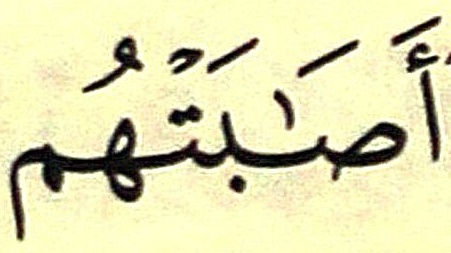 أَصَـٰبَتْهُم